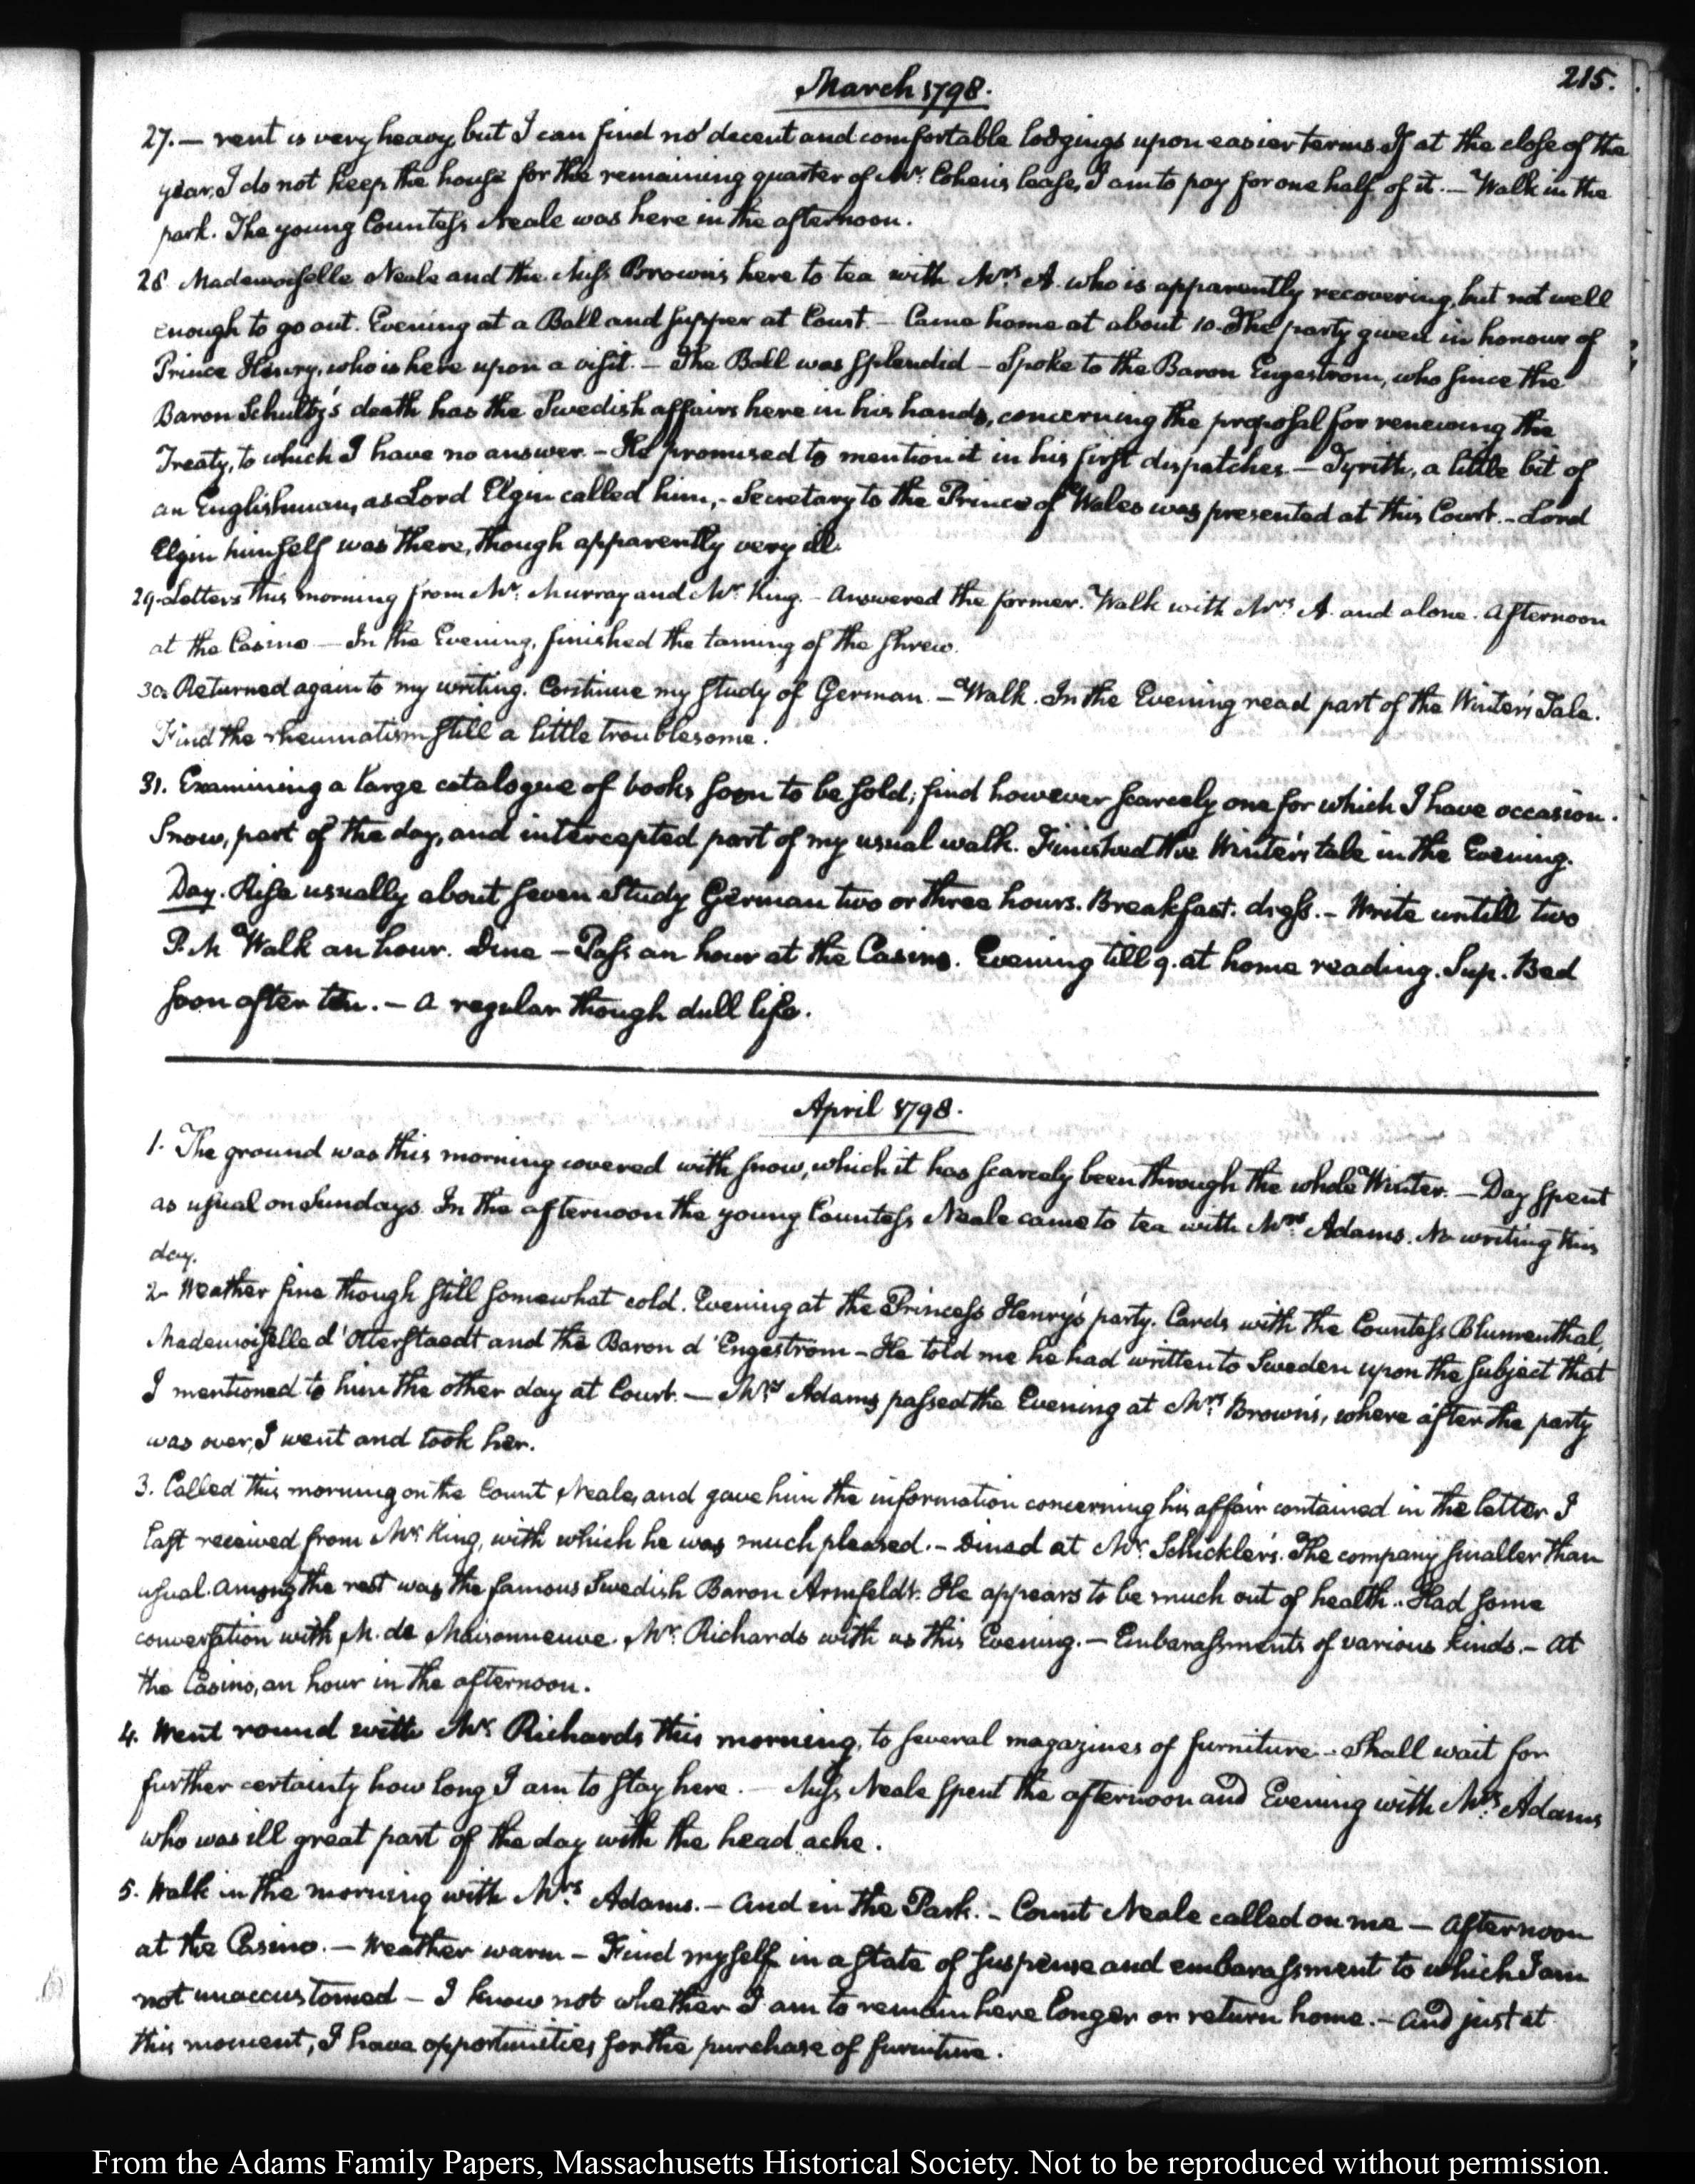 March 1798.
215.
27. — rent is very heavy, but I can find no decent and comfortable lodgings upon easier terms. If at the close of the
year, I do not keep the house for the remaining quarter of Mr. Cohen's lease, I am to pay for one half of it. — Walk in the
park. The young Countess Neale was here in the afternoon.
28. Mademoiselle Neale and the Miss Brown's here to tea with Mrs. A. who is apparently recovering, but not well
enough to go out. Evening at a Ball and supper at Court — Came home at about 10. The party given in honour of
Prince Henry, who is here upon a visit. — The Ball was splendid — Spoke to the Baron Engestrom, who since the
Baron Schultz's death has the Swedish affairs here in his hands, concerning the proposal for renewing the
Treaty, to which I have no answer. — He promised to mention it in his first dispatches. — Tyrith, a little bit of
an Englishman, as Lord Elgin called him, - Secretary to the Prince of Wales was presented at this Court. - Lord
Elgin himself was there, though apparently very ill.
29. Letters this morning from Mr. Murray and Mr. King. - Answered the former. Walk with Mrs. A. and alone. Afternoon
at the Casino — In the Evening, finished the taming of the Shrew.
30. Returned again to my writing. Continue my study of German. — Walk. In the Evening read part of the Winter's Tale.
Find the rheumatism still a little troublesome.
31. Examining a large catalogue of books soon to be sold; find however scarcely one for which I have occasion.
Snow, part of the day, and intercepted part of my usual walk. Finished the Winter's tale in the Evening.
Day. Rise usually about seven Study German two or three hours. Breakfast. dress. — Write untill two
P.M Walk an hour. Dine — Pass an hour at the Casino. Evening till 9. at home reading. Sup. Bed
soon after ten. — A regular though dull life.
April 1798.
1. The ground was this morning covered with snow, which it has scarcely been through the whole Winter. — Day spent
as usual on Sundays. In the afternoon the young Countess Neale came to tea with Mrs. Adams. No writing this
day.
2. Weather fine though still somewhat cold. Evening at the Princess Henry's party. Cards with the Countess Blumenthal,
Mademoiselle d'Otterstaedt and the Baron d'Engestrom — He told me he had written to Sweden upon the subject that
I mentioned to him the other day at Court. — Mrs. Adams passed the Evening at Mrs. Brown's, where after the party
was over, I went and took her.
3. Called this morning on the Count Neale, and gave him the information concerning his affair contained in the letter I
last received from Mr. King, with which he was much pleased. — Dined at Mr. Schickler's. The company smaller than
usual. Among the rest was the famous Swedish Baron Armfeldt. He appears to be much out of health. Had some
conversation with M. de Maisonneuve. Mr. Richards with us this Evening. — Embarassments of various kinds. — At
the Casino, an hour in the afternoon.
4. Went round with Mr. Richards this morning, to several magazines of furniture — Shall wait for
further certainty how long I am to stay here. — Miss Neale spent the afternoon and Evening with Mrs. Adams
who was ill great part of the day with the head ache.
5. Walk in the morning with Mrs. Adams. — And in the Park. — Count Neale called on me — Afternoon
at the Casino. — Weather warm — Find myself in a state of suspense and embarassment to which I am
not unaccustomed — I know not whether I am to remain here longer or return home. — And just at
this moment, I have opportunities for the purchase of furniture.
From the Adams Family Papers, Massachusetts Historical Society. Not to be reproduced without permission.